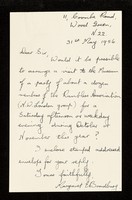 11, Coombe Road,
Wood Green,
N.22
31st May 1956
Dear Sir,
Would it be possible
to arrange a visit to the Museum
of a party of about a dozen
members of the Rambles Association
(N.W. London group) for a
Saturday afternoon or weekday
evening during October or
November this year?
I enclose stamped addressed
envelope for your reply.
Yours faithfully,
Margaret E.